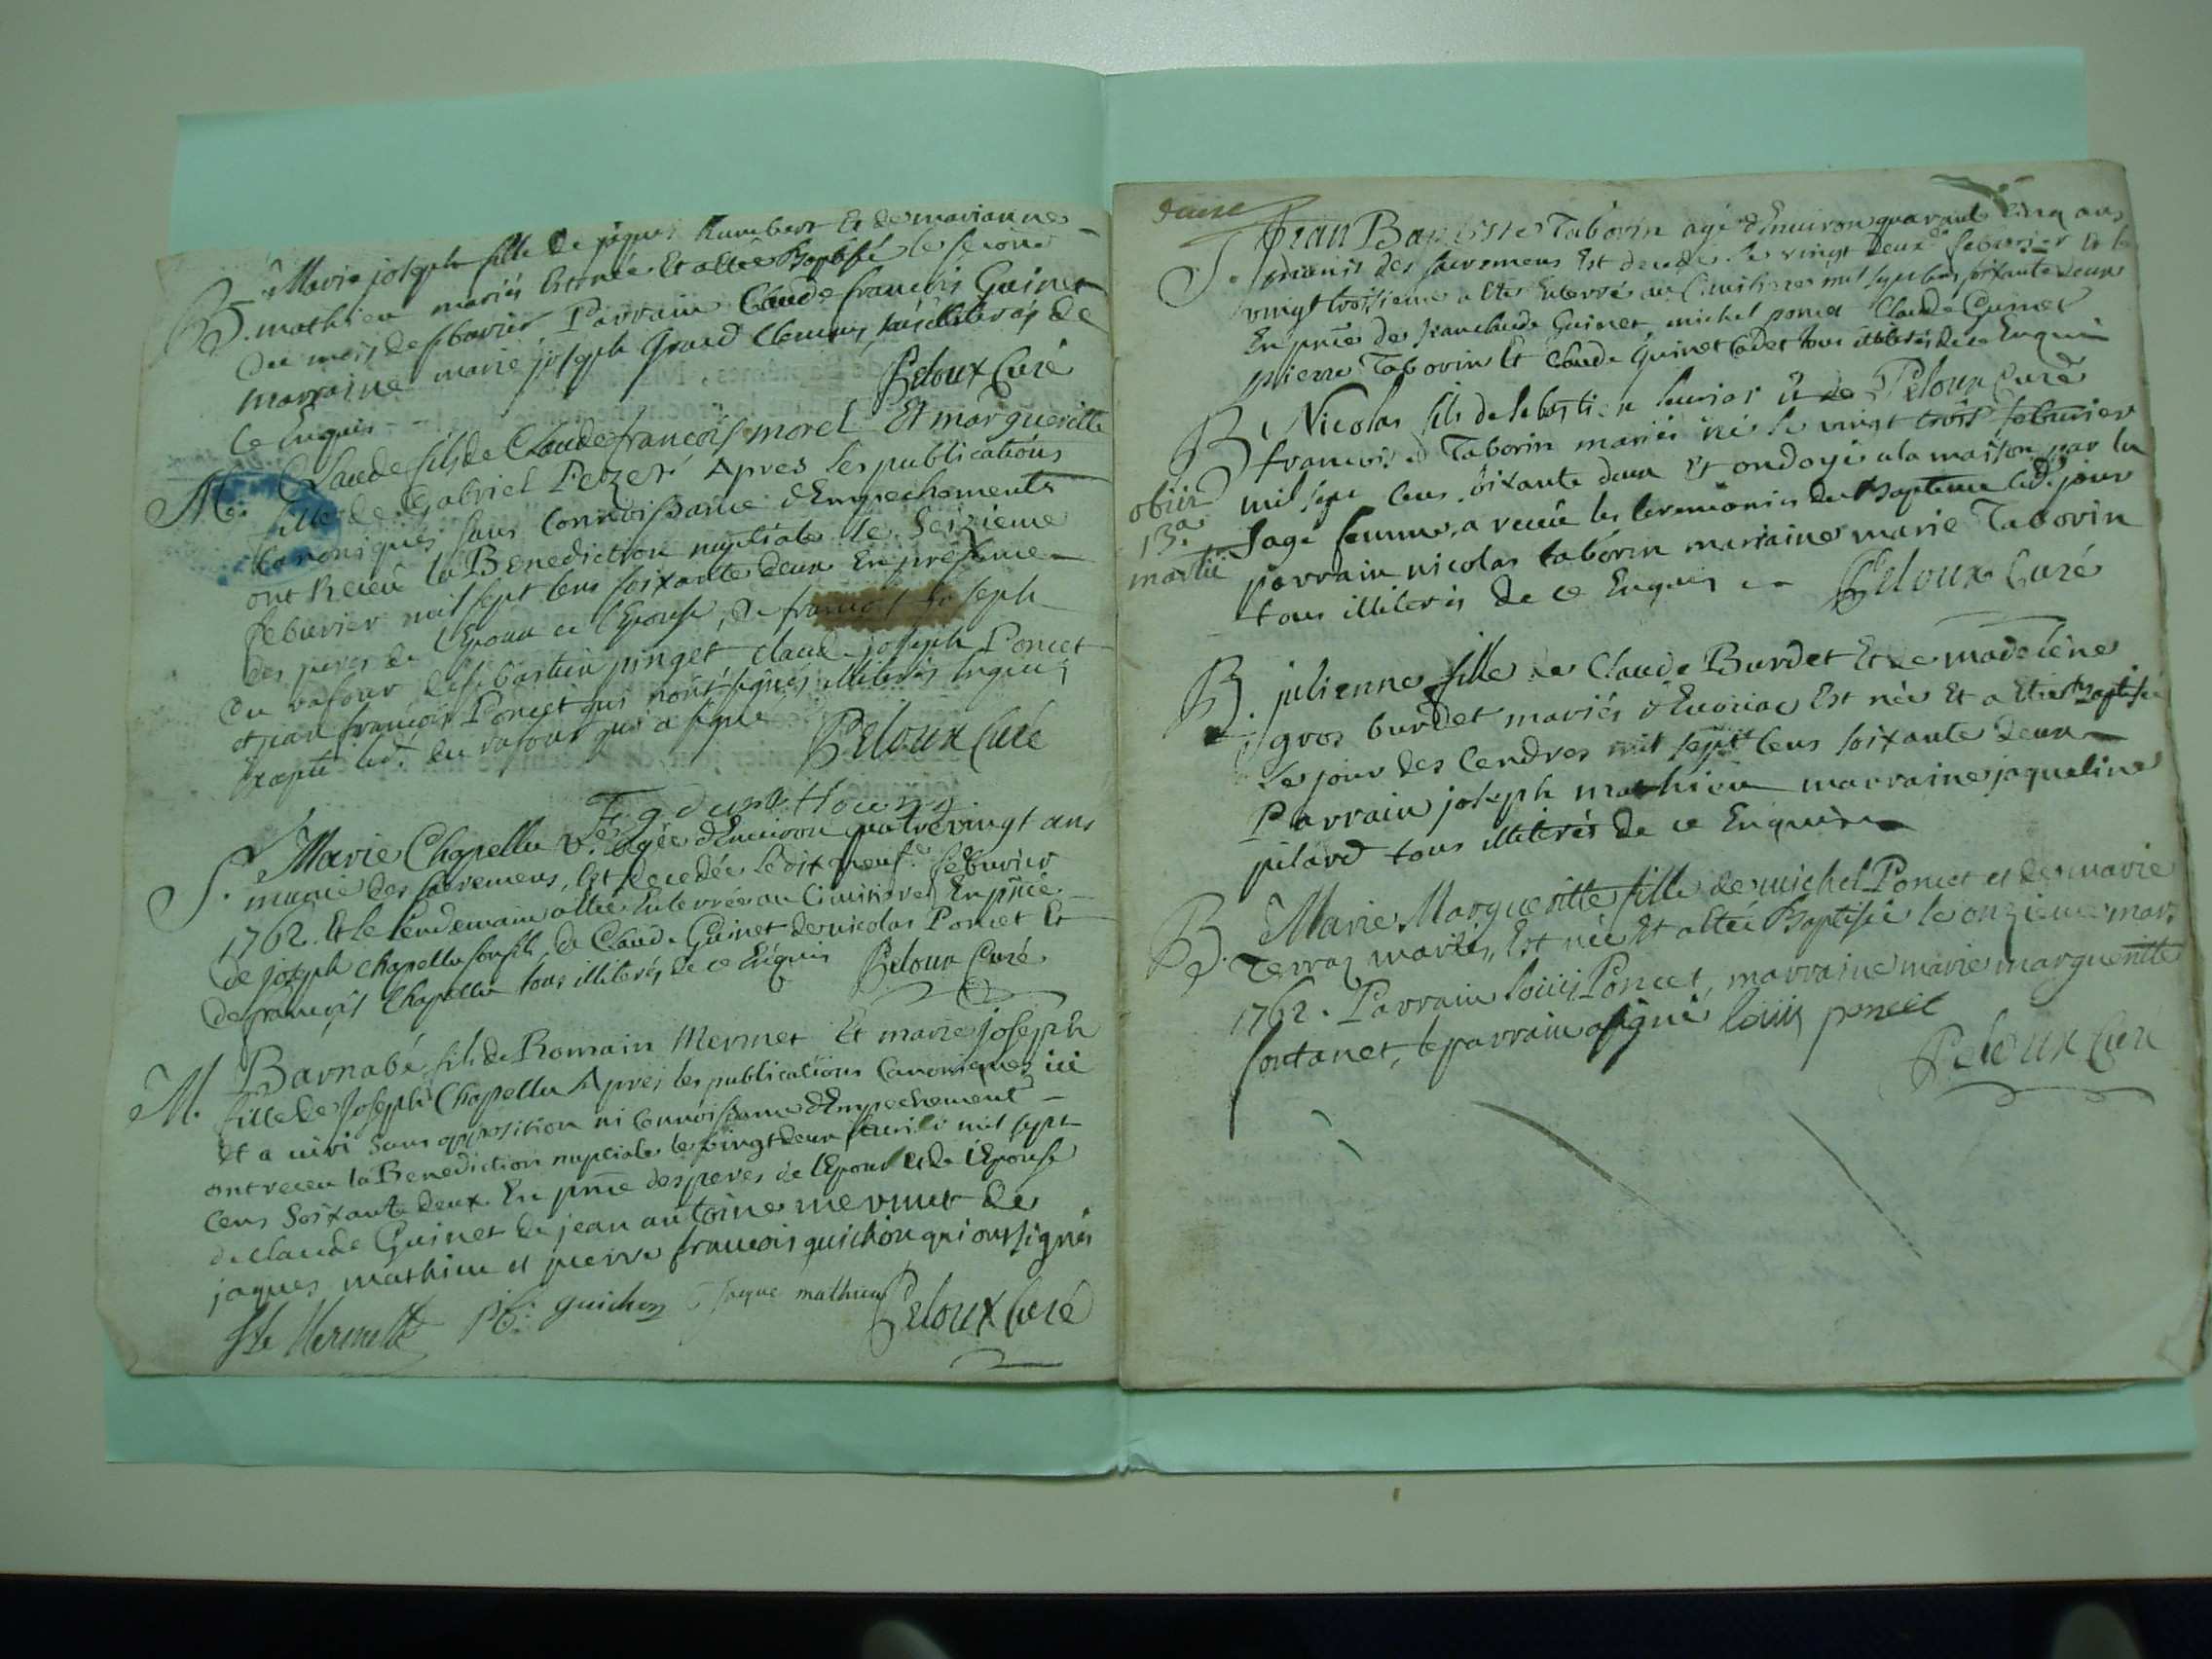 B. Marie joseph fille de jaques humbert Et de marianne
mathieu mariés Est née Et a Eté Baptisé le second
du mois de febvrier Parrain Claude françois Guinet
marraine marie joseph Grand Clement, illiterés de
ce Enquis Peloux Curé
M. Claude fils de Claude françois morel Et margueritte
fille de Gabriel Pezeré Apres les publications
Canoniques sans Connoissance d'Empechements
ont Receu la Benediction nuptiale le Seizieme
febvrier mil sept cens soixante deux En presence
des peres de l'Epoux et l'Epouse, de françois joseph
Du rafour de sebastien pinget claude joseph Poncet
et jean françois Poncet qui n'ont signés illiterés Enquis
Excepté led. Du rafour qui a signé Peloux Curé
S. Marie Chapellu v.e agée d'Environ quatre vingt ans
munie des sacremens, Est decedée le dix neuf.e febvrier
1762. Et le lendemain a Eté Enterrée au Cimitiere En pnce
de joseph chapellu son fils, de Claude Guinet de nicolas Poncet Et
de françois Chapellu tous illiterés de ce Enquis Peloux Curé
M. Barnabé fils de Romain Mermet Et marie joseph
fille de Joseph Chapellu Apres les publications Canoniques ici
et a viri sans opposition ni Connoissance d'Empechement
ont receu la Benediction nuptiale le vingt deux mil sept
cens Soixante deux En pnce des peres de l'Epoux et de l'Epouse
de claude Guinet de jean antoine mermet de
jaques mathieu et pierre françois guichon qui ont signés
Mermet p f: guichon jaque mathieu Peloux Curé
S. Jean Baptiste Taborin agé d'Environ quarante cinq ans
munis des sacremens Est decedé le vingt deux.e febvrier Et le
vingt troisieme a Eté Enterré au Cimitiere mil sept cens soixante deux
En pnce de jean claude Guinet, michel poncet Claude Guinet
pierre Taborin Et Claude Guinet Cadet tous illiterés de ce Enquis
B. Nicolas fils de sebastien Et de Peloux Curé
françoise Taborin mariés né le vingt trois febvrier
obiit
13.a
martii
mil sept cens soixante deux Et ondoyé a la maison par la
sage femme, a receu les ceremonies du Bapteme led. jour
parrain nicolas taborin marraine marie Taborin
tous illiterés de ce Enquis Peloux Curé
B. julienne fille de Claude Burdet Et de madeléne
gros burdet mariés d'Evoriac Est née Et a Eté Baptisée
Le jour des Cendres mil sept cens soixante deux
Parrain joseph mathieu marraine jaqueline
pilard tous illiterés de ce Enquis
B. Marie Margueritte fille de michel Poncet et de marie
Terraz mariés, Est née Et a Eté Baptisée le onzieme mars
1762. Parrain Louis Poncet, marraine marie marguerite
fontanet, le parrain a signé Louis poncet
Peloux Curé